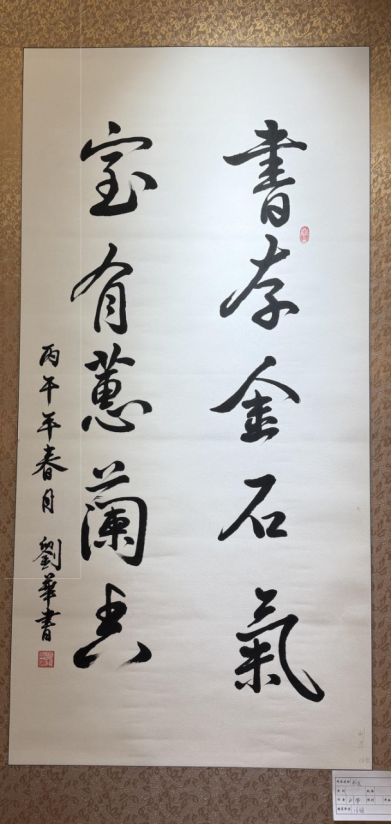 書存金石氣
室有蕙蘭香
丙午年春月 劉華書